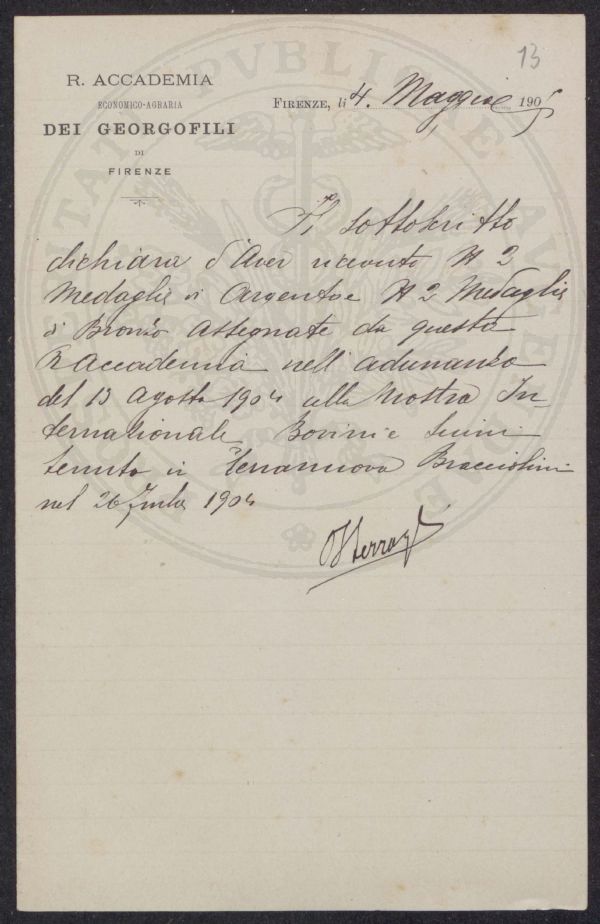 13
R. ACCADEMIA
ECONOMICO-AGRARIA
DEI GEORGOFILI
DI
FIRENZE
FIRENZE, li 4. Maggio 1905
Il sottoscritto
dichiara d'aver ricevuto N 2
Medaglie di Argento e N 2 Medaglie
di Bronzo assegnate da questa
R Accademia nell' adunanza
del 13 Agosto 1904 alla Mostra In-
ternazionale Bovini e Suini
tenuta in Terranuova Bracciolini
nel 26 1904
PUBLIC